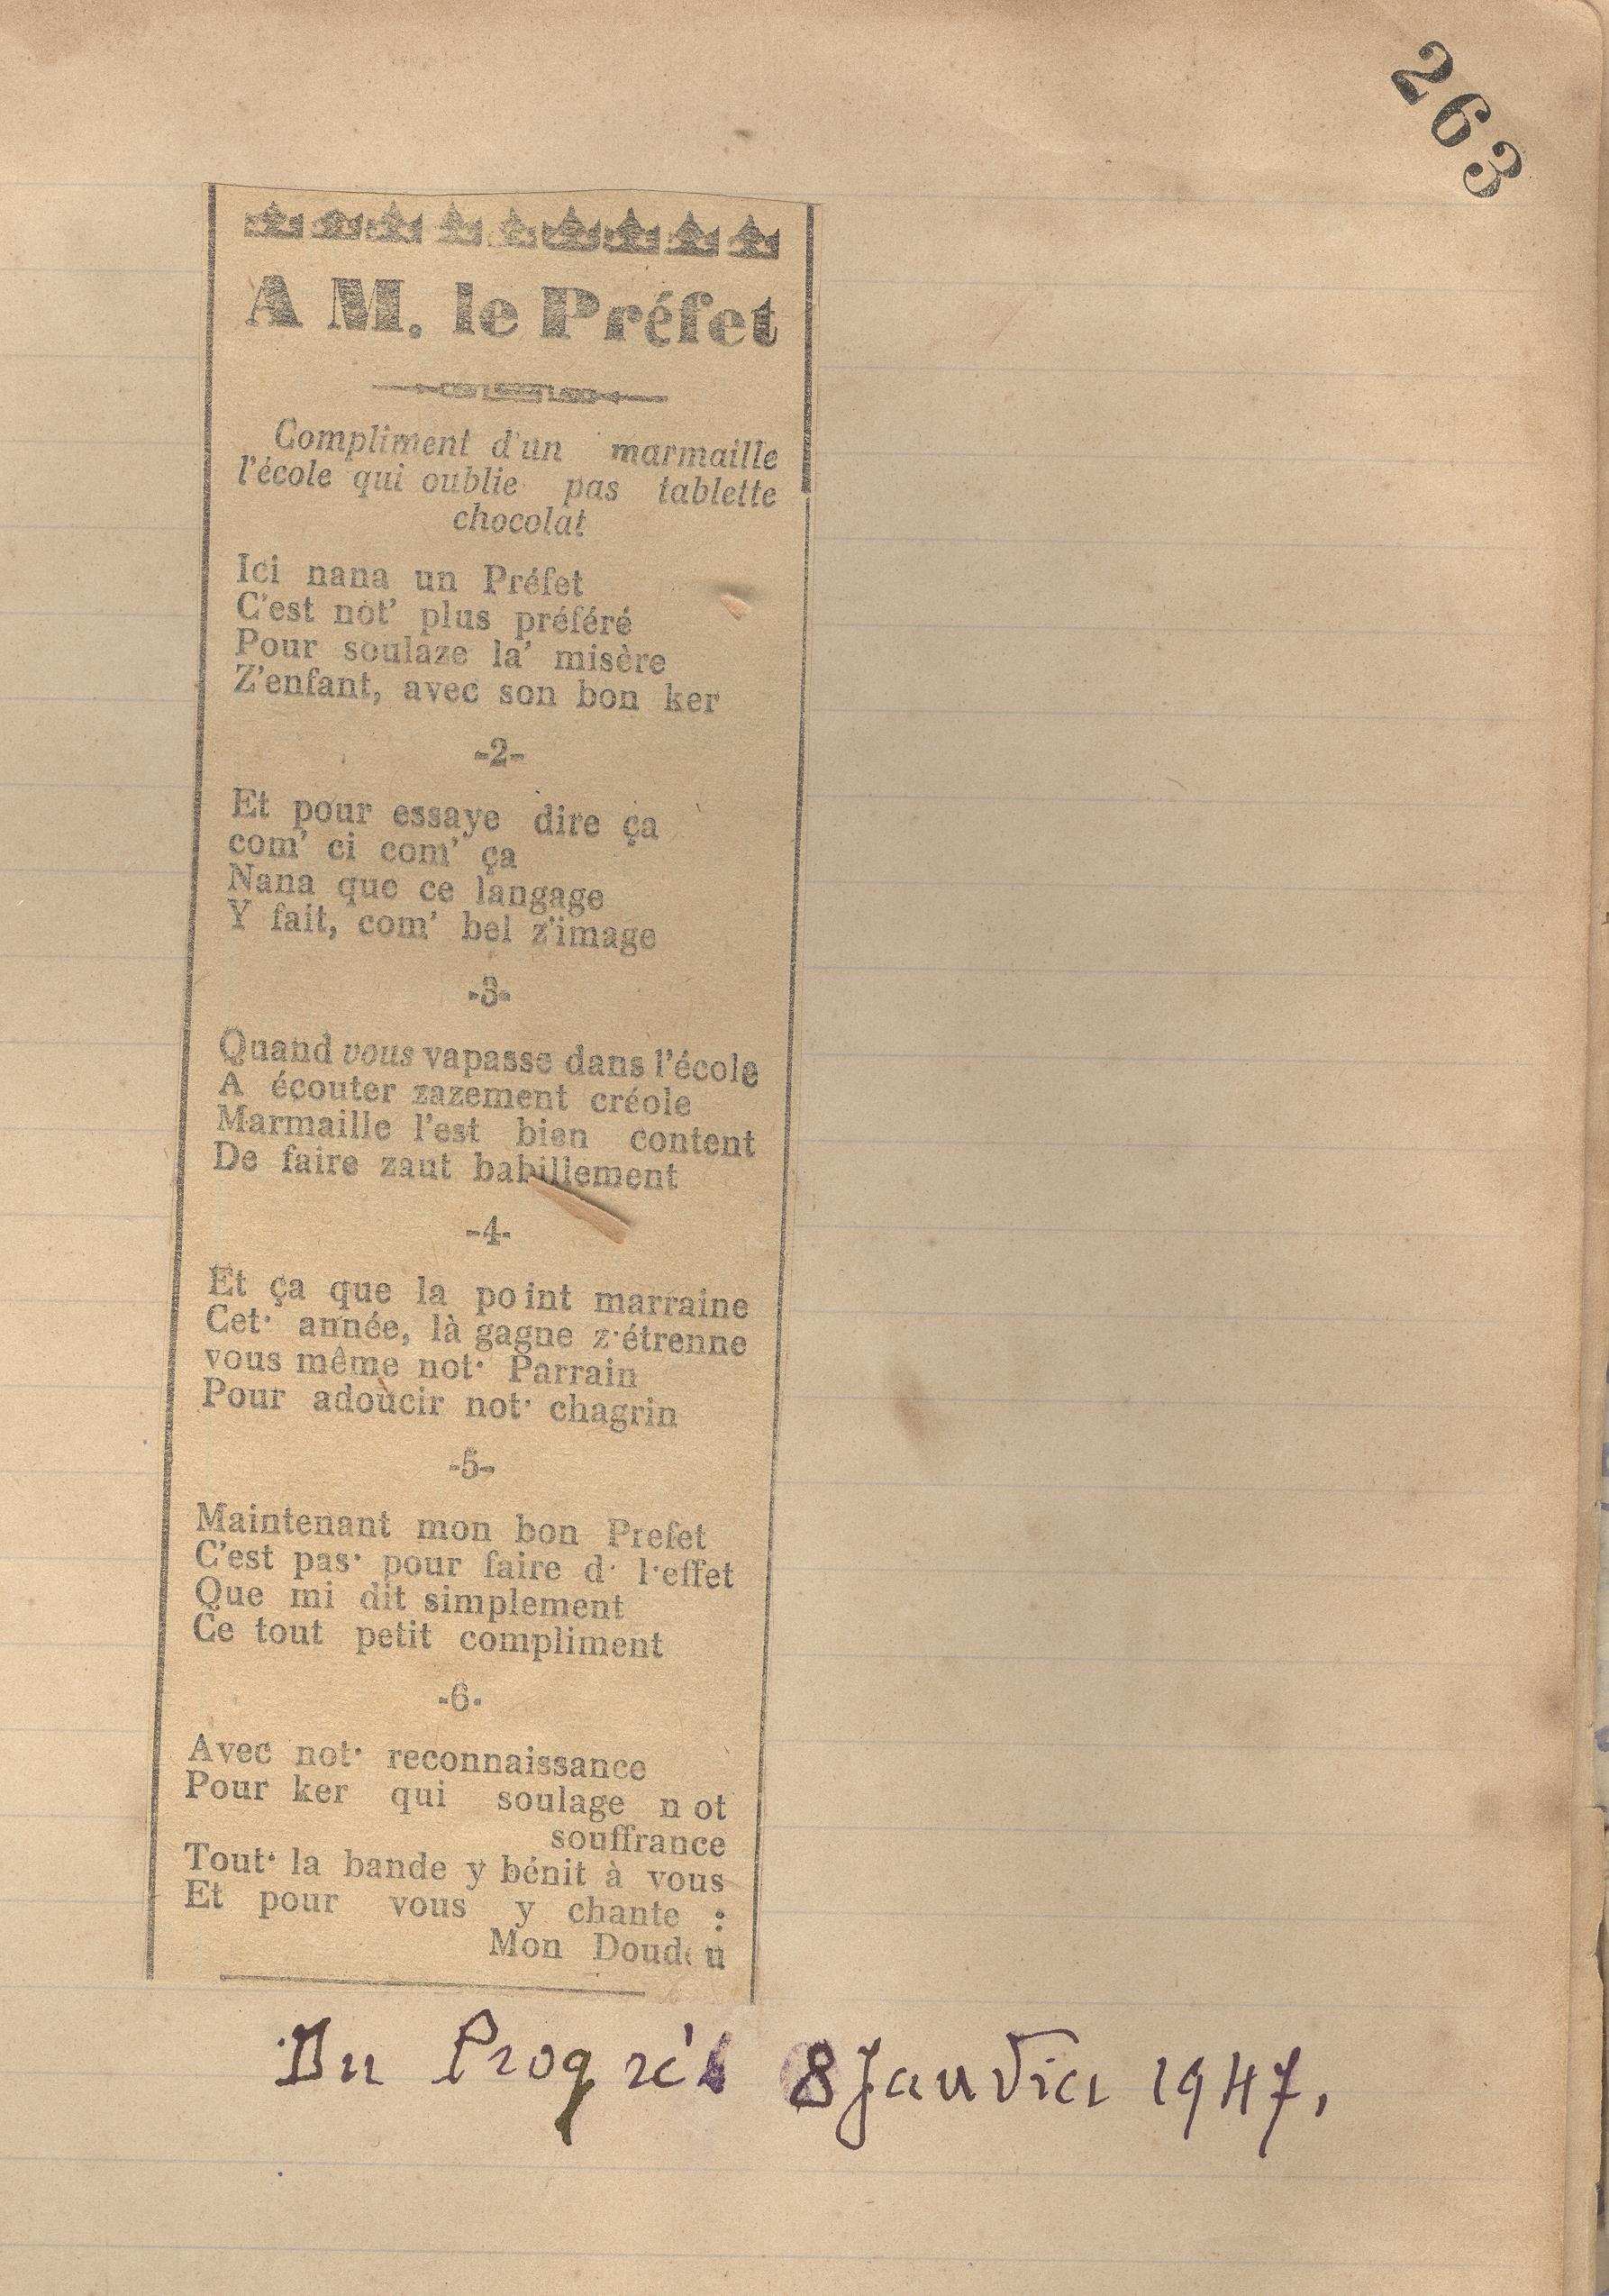 263
A M. le Préfet
Compliment d'un marmaille
l'école qui oublie pas tablette
chocolat
Ici nana un Préfet
C'est not' plus préféré
Pour soulaze la' misère
Z'enfant, avec son bon ker
-2-
Et pour essaye dire ça
com' ci com' ça
Nana que ce langage
Y fait, com' bel z'image
-3-
Quand vous vapasse dans l'école
A écouter zazement créole
Marmaille l'est bien content
De faire zaut babillement
-4-
Et ça que la point marraine
Cet' année, là gagne z'étrenne
vous même not' Parrain
Pour adoucir not' chagrin
-5-
Maintenant mon bon Prefet
C'est pas' pour faire d' l'effet
Que mi dit simplement
Ce tout petit compliment
-6-
Avec not' reconnaissance
Pour ker qui soulage not
souffrance
Tout' la bande y bénit à vous
Et pour vous y chante :
Mon
Du Progrès 8 Janvier 1947.